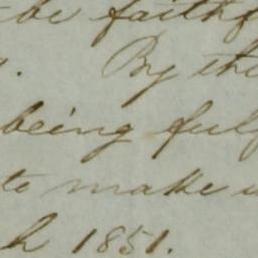 be faithf
. By the
being fulf
to make u
h 1851.